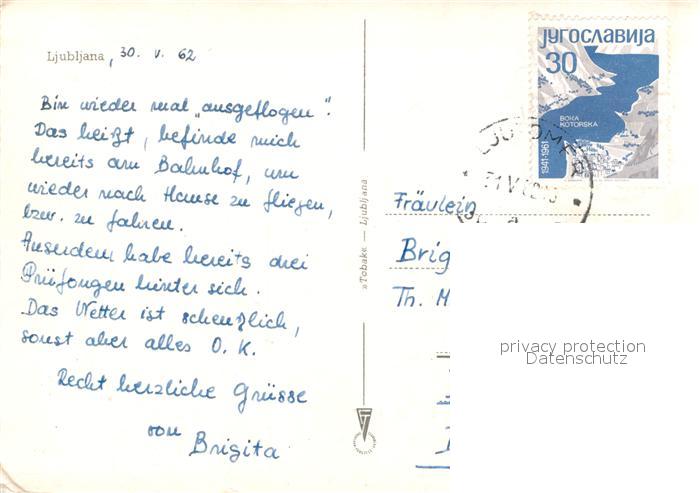 Ljubljana, 30. V. 62
Bin wieder mal „ausgeflogen“.
Das heißt, befinde mich
bereits am Bahnhof, um
wieder nach Hause zu fliegen,
bzw. zu fahren.
Ausserdem habe bereits drei
Prüfungen hinter sich.
Das Wetter ist scheußlich,
sonst aber alles O. K.
Recht herzliche Grüsse
von
Brigita
»Tobak« — Ljubljana
Југославија
30
BOKA
KOTORSKA
1941-1961
Fräulein
Brig
Th. M
privacy protection
Datenschutz